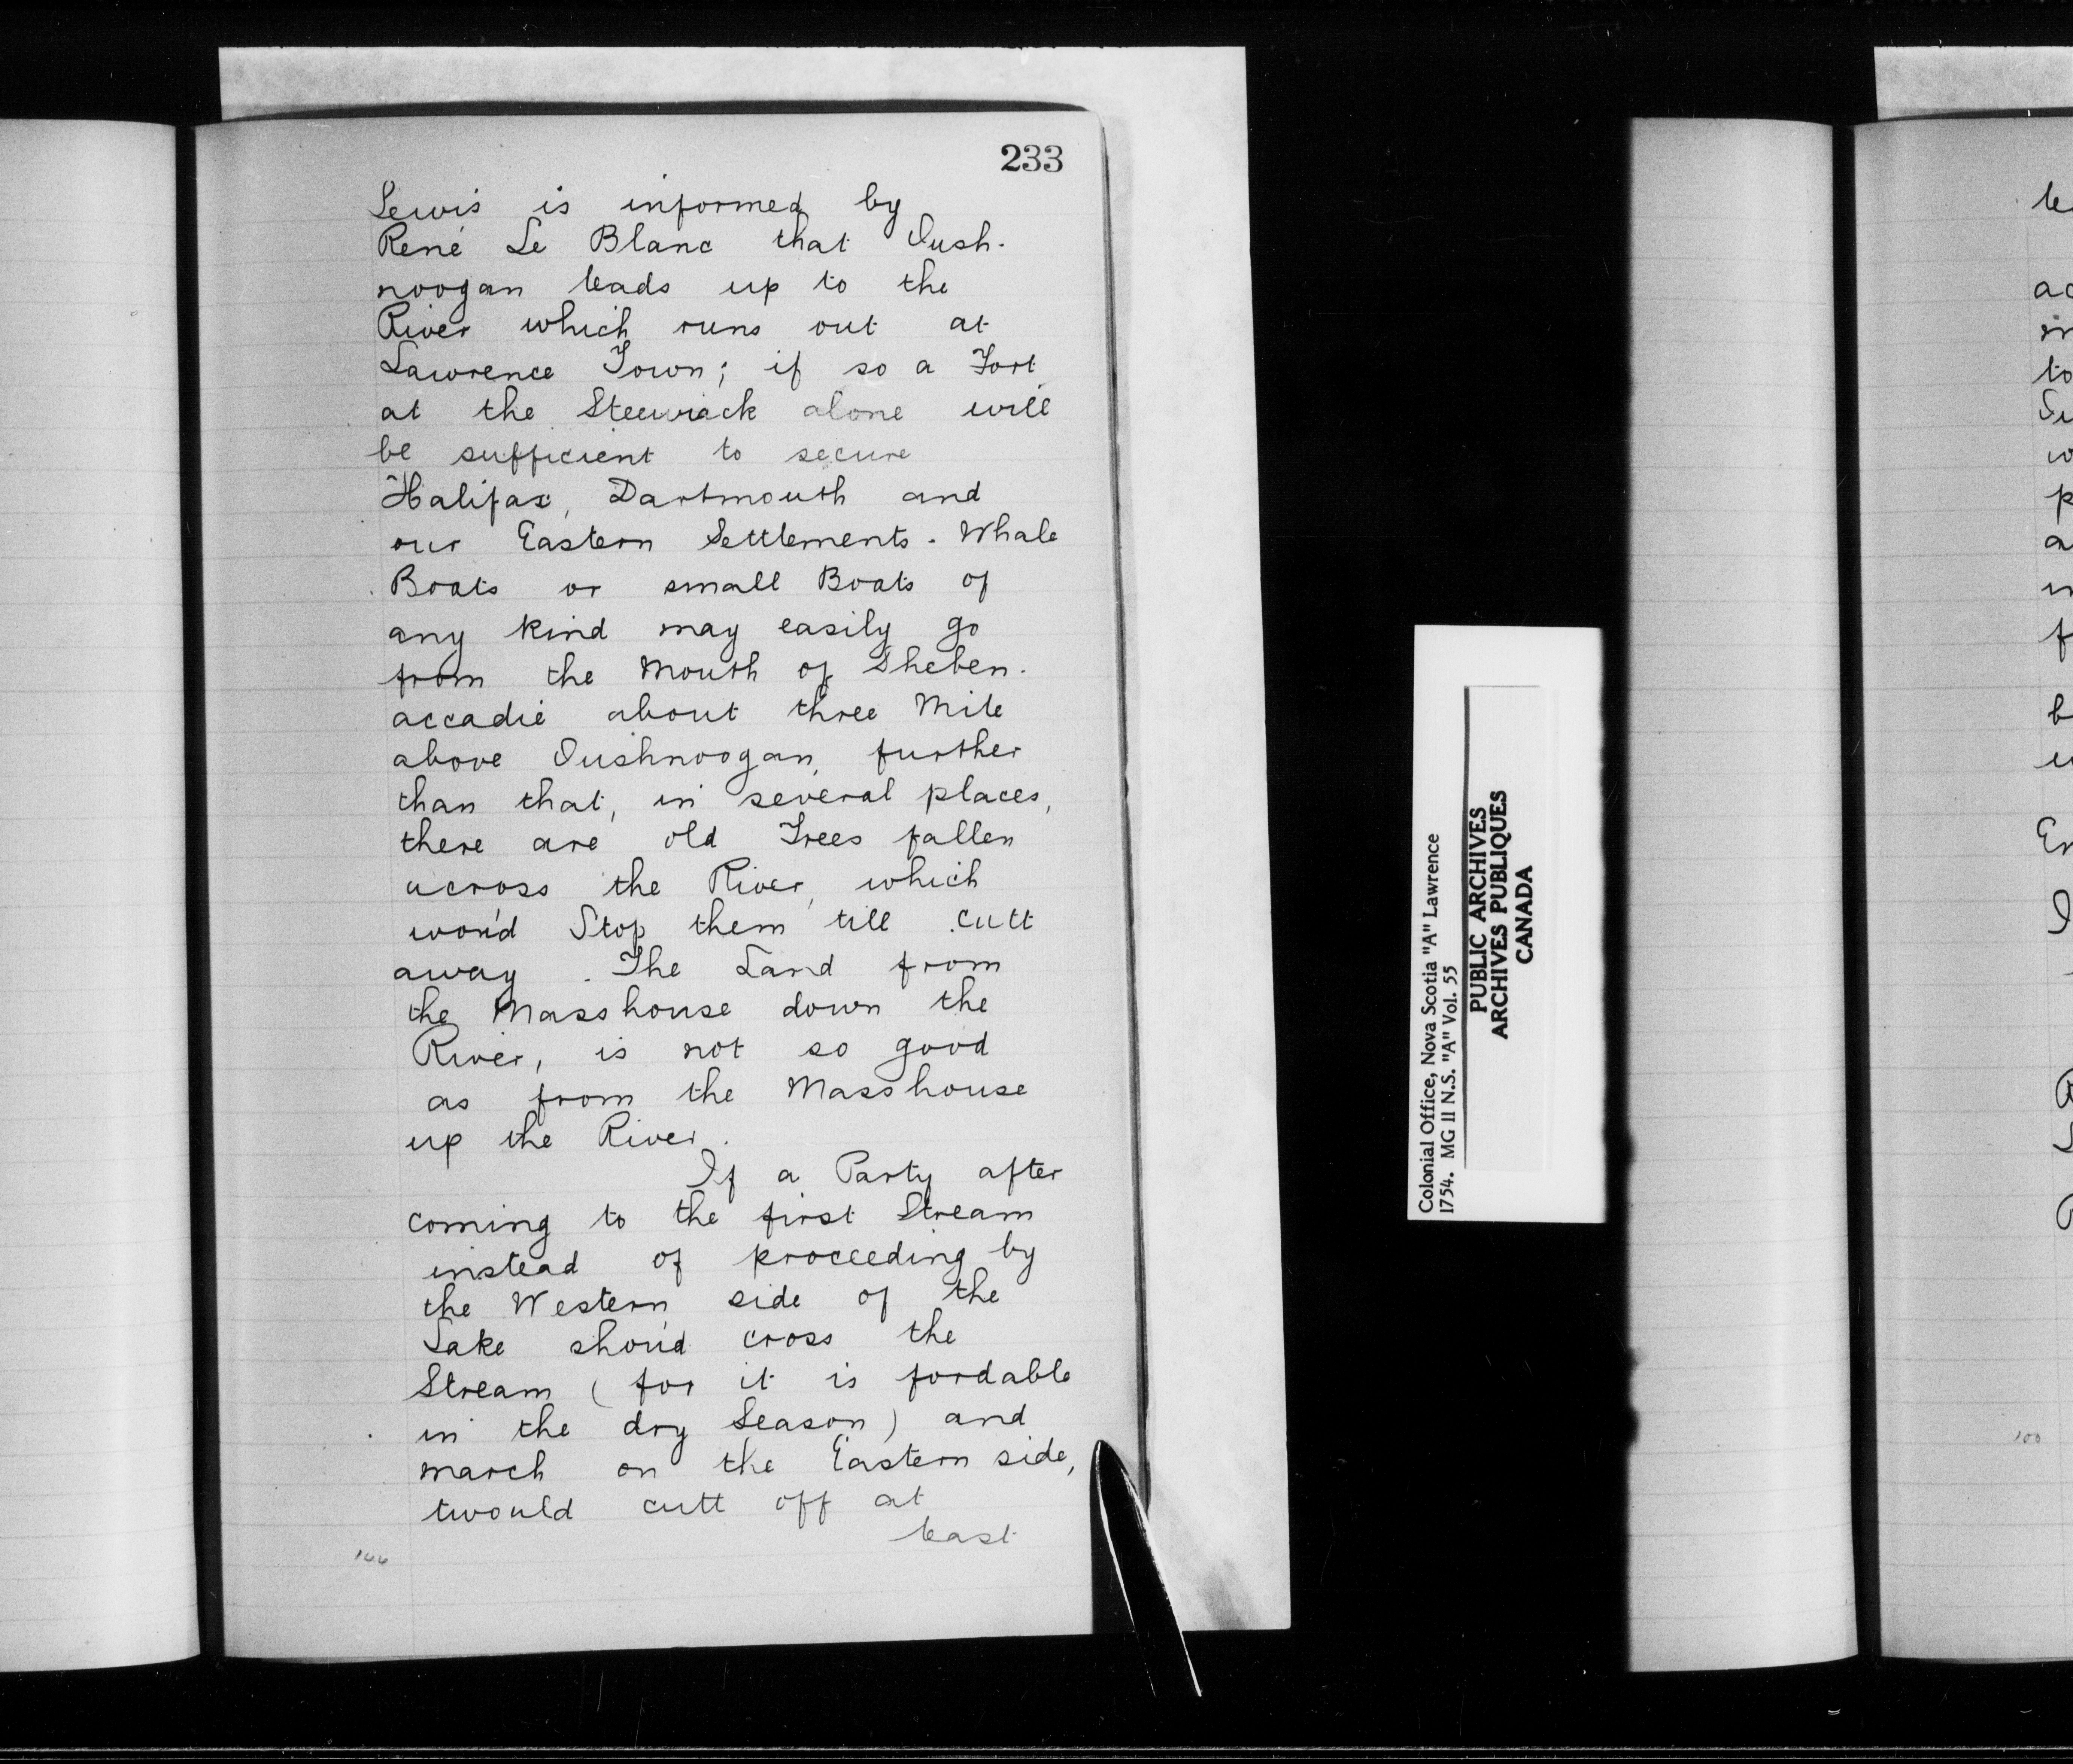 233
Lewis is informed by
René Le Blanc that Oush-
noogan leads up to the
River which runs out at
Lawrence Town; if so a Fort
at the Steewiack alone will
be sufficient to secure
Halifax, Dartmouth and
our Eastern Settlements. Whale
Boats or small Boats of
any kind may easily go
from the Mouth of Sheben-
accadie about three Mile
above Oushnoogan, further
than that, in several places,
there are old Trees fallen
across the River, which
wou'd Stop them till cutt
away. The Land from
the Masshouse down the
River, is not so good
as from the Masshouse
up the River.
If a Party after
coming to the first Stream
instead of proceeding by
the Western side of the
Lake shou'd cross the
Stream (for it is fordable
in the dry Season) and
march on the Eastern side,
twould cutt off at
least
Colonial Office, Nova Scotia "A" Lawrence
1754. MG 11 N.S. "A" Vol. 55
PUBLIC ARCHIVES
ARCHIVES PUBLIQUES
CANADA
100